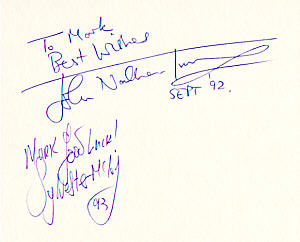 To Mark,
Best Wishes
John Nathan
SEPT '92.
Mark
Good Luck!
Sylvester McCoy
'93